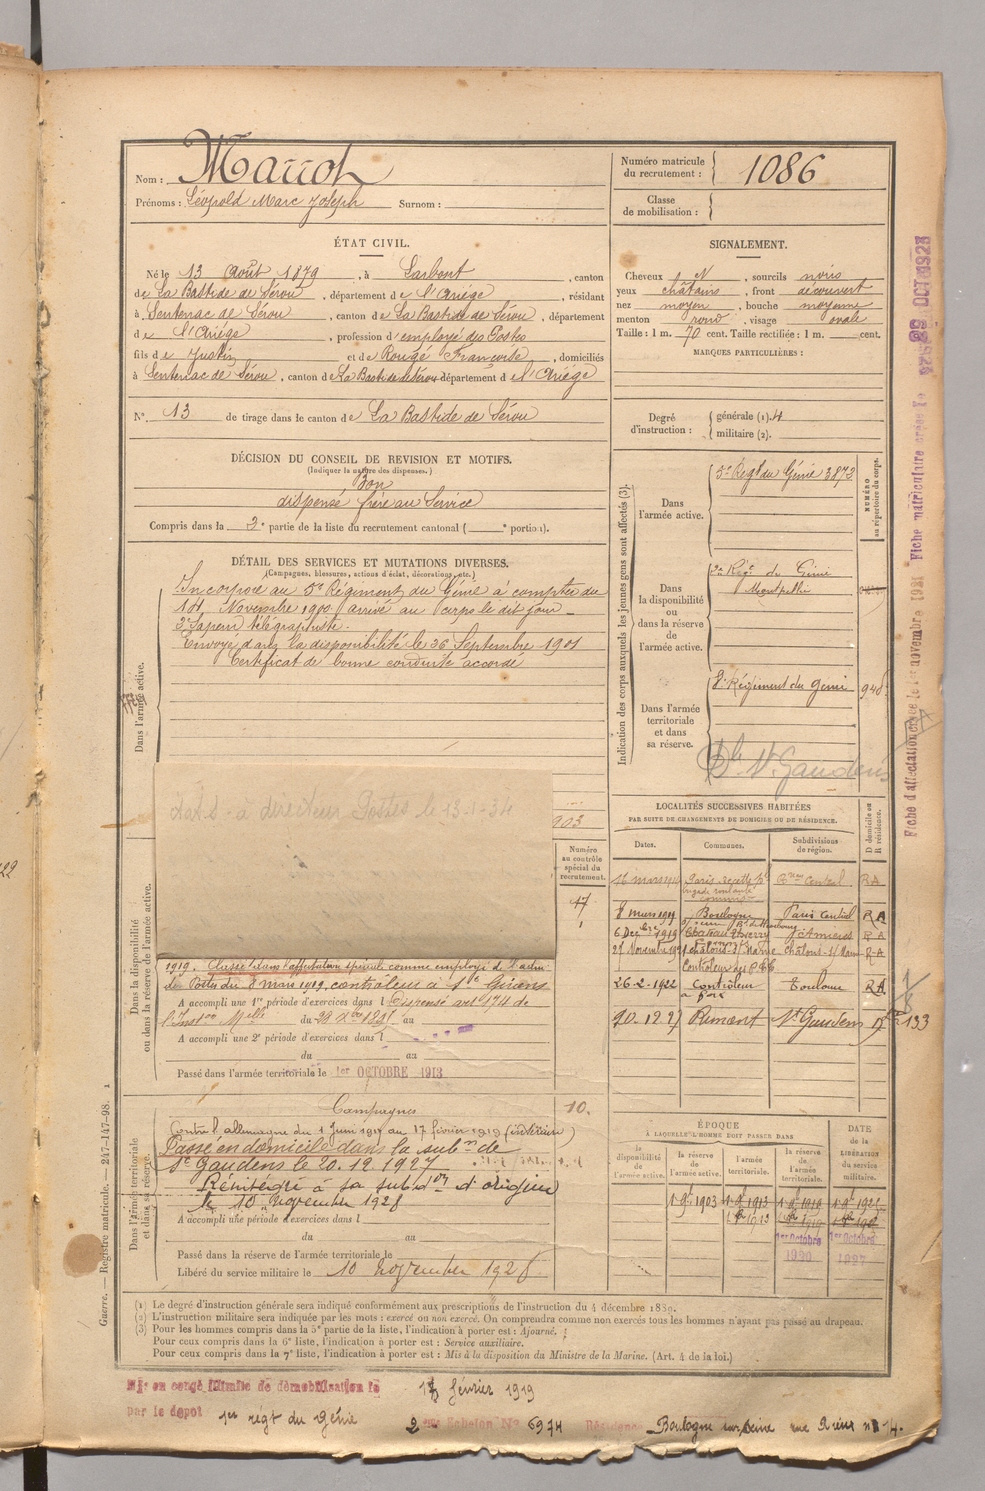 Nom : Marrot
Prénoms : Léopold Marc Joseph Surnom :
Numéro matricule du recrutement : 1086
Classe de mobilisation :
ÉTAT CIVIL.
Né le 13 Août 1879, à Larbont, canton
de La Bastide de Sérou, département de l'Ariége, résidant
à Sentenac de Sérou, canton de La Bastide de Sérou, département
de l'Ariége, profession d'employé des Postes
fils de Justin et de Rougé Françoise, domiciliés
à Sentenac de Sérou, canton de La Bastide de Sérou département de l'Ariége
N° 13 de tirage dans le canton de La Bastide de Sérou
SIGNALEMENT.
Cheveux N, sourcils noirs
yeux châtains, front découvert
nez moyen, bouche moyenne
menton rond, visage ovale
Taille : 1 m. 70 cent. Taille rectifiée : 1 m. cent.
MARQUES PARTICULIÈRES :
Degré d'instruction : générale (1). 4
militaire (2).
DÉCISION DU CONSEIL DE REVISION ET MOTIFS.
(Indiquer la nature des dispenses.)
Bon
dispensé frère au Service
Compris dans la 2e partie de la liste du recrutement cantonal ( e portion).
DÉTAIL DES SERVICES ET MUTATIONS DIVERSES.
(Campagnes, blessures, actions d'éclat, décorations, etc.)
Dans l'armée active.
Incorporé au 5e Régiment du Génie à compter du
14 Novembre 1900 arrivé au corps le dit jour
2e Sapeur télégraphiste.
Envoyé dans la disponibilité le 26 Septembre 1901
Certificat de bonne conduite accordé
Indication des corps auxquels les jeunes gens sont affectés (3).
NUMÉRO au répertoire du corps.
Dans l'armée active.
5e Regt du Génie 3872
Dans la disponibilité ou dans la réserve de l'armée active.
2e Regt du Génie
Montpellier
Dans l'armée territoriale et dans sa réserve.
8e Régiment du génie
St Gaudens
à directeur Postes le 13-1-34
903
Numéro au contrôle spécial du recrutement.
Dans la disponibilité ou dans la réserve de l'armée active.
1919. Classé dans l'affectation spéciale comme employé de l'adm
des Postes du 8 mars 1919, contrôleur à St Girons
A accompli une 1re période d'exercices dans l Dispensé art 174 de
l'Inston Melle du au
A accompli une 2e période d'exercices dans l
du au
Passé dans l'armée territoriale le 1er OCTOBRE 1913
LOCALITÉS SUCCESSIVES HABITÉES
PAR SUITE DE CHANGEMENTS DE DOMICILE OU DE RÉSIDENCE.
Dates. Communes. Subdivisions de région. D domicile ou R résidence.
Paris Central RA
8 mars 1919 Boulogne Paris Central RA
6 Dec 1919 Chateau Thierry RA
27 Novembre Chalons s/ Marne Chalons s/ Marne RA
26-2-1922 Contrôleur Toulouse RA
20.12.27 St Gaudens
133
Dans l'armée territoriale et dans sa réserve.
Campagnes
10.
Contre l'allemagne du 1 Juin 1917 au 17 février 1919 (intérieur)
Passé en domicile dans la subon de
St Gaudens le 20.12.1927
Réintégré à sa subdon d'origine
le 10 novembre 1928
A accompli une période d'exercices dans l
du au
Passé dans la réserve de l'armée territoriale le
Libéré du service militaire le 10 novembre 1928
ÉPOQUE
À LAQUELLE L'HOMME DOIT PASSER DANS
la disponibilité de l'armée active.
la réserve de l'armée active.
l'armée territoriale.
la réserve de l'armée territoriale.
DATE de la LIBÉRATION du service militaire.
1 9 1903
1er Octobre 1920
1er Octobre 1927
(1) Le degré d'instruction générale sera indiqué conformément aux prescriptions de l'instruction du 4 décembre 1889.
(2) L'instruction militaire sera indiquée par les mots : exercé ou non exercé. On comprendra comme non exercés tous les hommes n'ayant pas passé au drapeau.
(3) Pour les hommes compris dans la 5e partie de la liste, l'indication à porter est : Ajourné.
Pour ceux compris dans la 6e liste, l'indication à porter est : Service auxiliaire.
Pour ceux compris dans la 7e liste, l'indication à porter est : Mis à la disposition du Ministre de la Marine. (Art. 4 de la loi.)
Mis en congé illimité de démobilisation le 17 février 1919
par le dépot 1er régt du Génie 2eme Echelon No 6974 Résidence Boulogne sur Seine
Guerre. — Registre matricule. — 247-147-98.
Fiche d'affectation créée le 1er novembre 1921 Fiche matriculaire créée le 29 OCT 1923